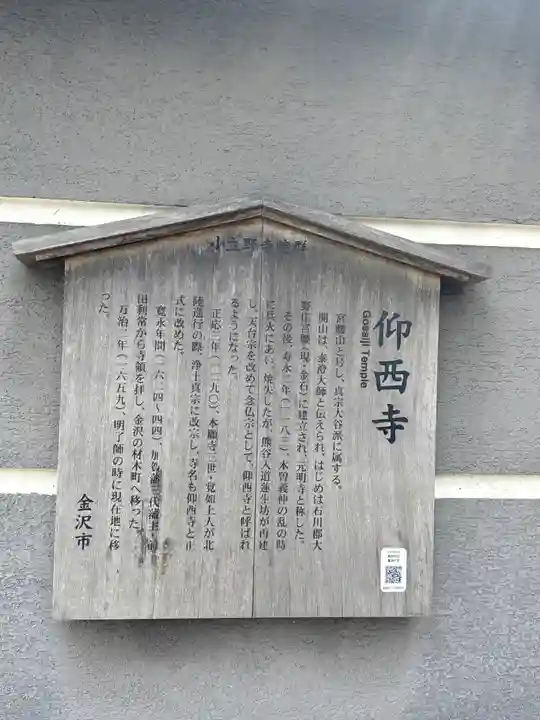 小立野寺院群
仰西寺
Gosaiji Temple
宮腰山と号し、真宗大谷派に属する。
開山は、泰澄大師と伝えられ、はじめは石川郡大
野庄宮腰(現・金石)に建立され、元明寺と称した。
その後、寿永二年(一一八三)、木曽義仲の乱の時
に兵火にあい、焼失したが、熊谷入道蓮生坊が再建
し、天台宗を改めて念仏宗として、仰西寺と呼ばれ
るようになった。
正応三年(一二九〇)、本願寺三世・覚如上人が北
陸巡行の際、浄土真宗に改宗し、寺名も仰西寺と正
式に改めた。
寛永年間(一六二四〜四四)、加賀藩三代藩主・前
田利常から寺領を拝し、金沢の材木町へ移った。
万治二年(一六五九)、明了師の時に現在地に移
った。
金沢市